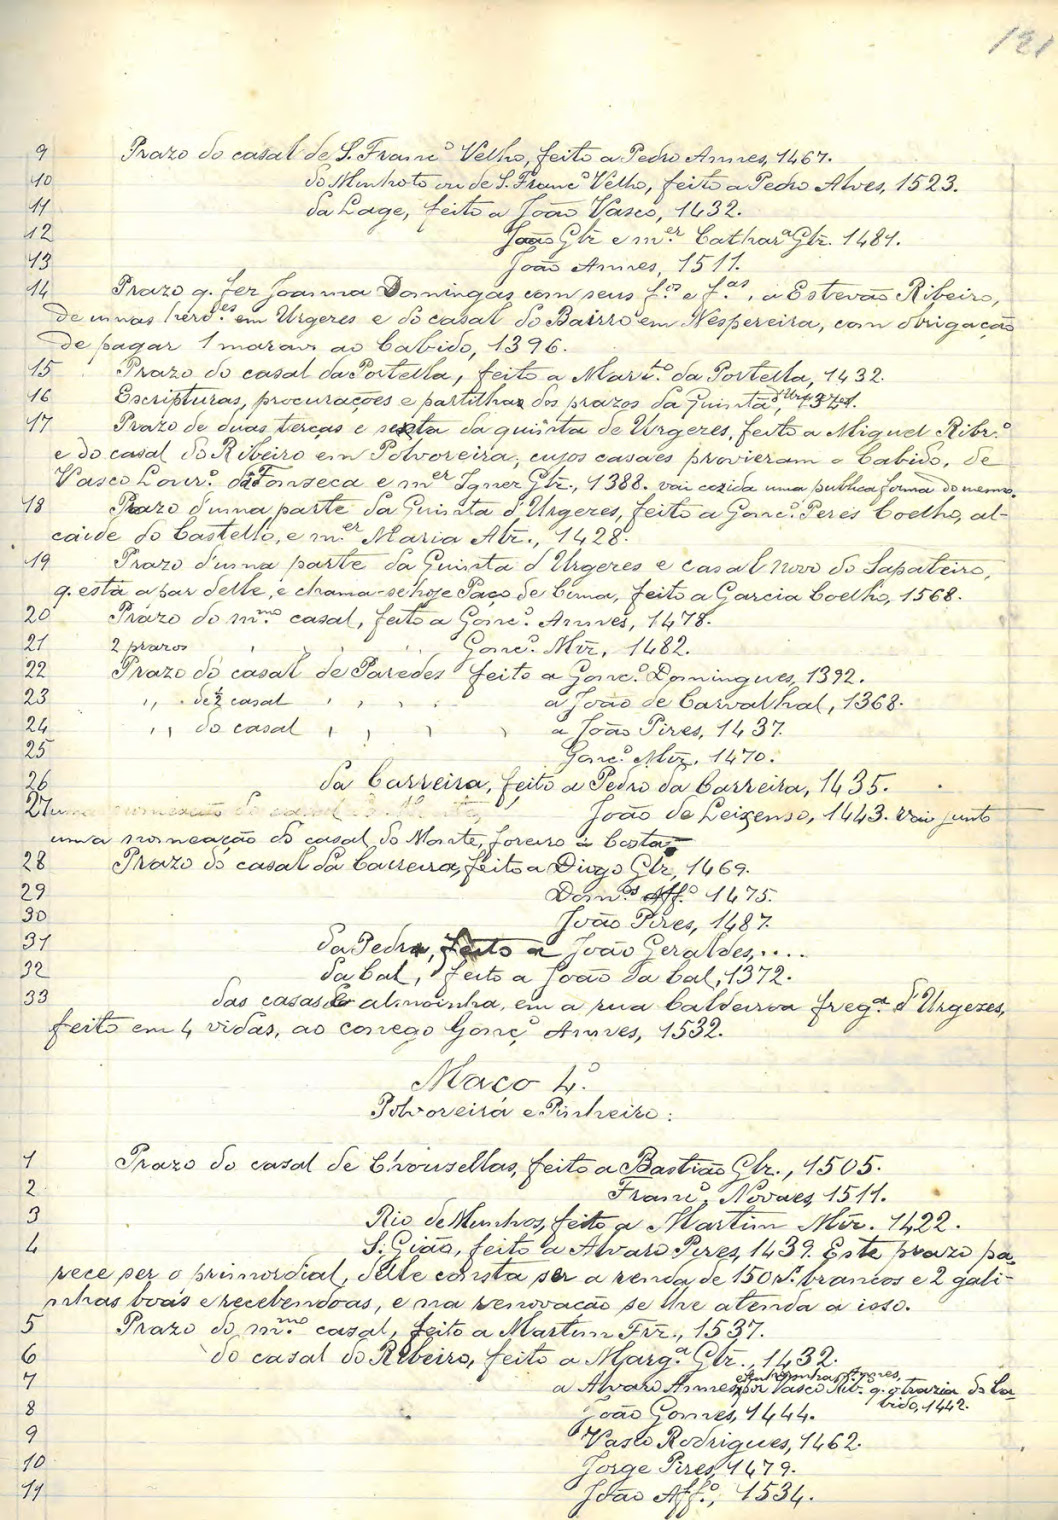 121
9 Prazo do casal de S. Franc.º Velho, feito a Pedro Annes, 1467.
10 do Minhoto ou de S. Franc.º Velho, feito a Pedro Alves, 1523.
11 da Lage, feito a João Vasco, 1432.
12 João Glz e m.er Cathar.a Glz. 1481.
13 João Annes, 1511.
14 Prazo q. fez Joanna Domingas com seus f.os e f.as, a Estevão Ribeiro,
de umas herd.es em Urgeres e do casal do Bairro em Nespereira, com obrigação
de pagar 1 marav. ao Cabido, 1396.
15 Prazo do casal da Portella, feito a Mart.º da Portella, 1432.
16 Escripturas, procurações e partilhas dos prazos da Quintã
17 Prazo de duas terças e sexta da quinta de Urgezes, feito a Miguel Ribr.º
e do casal do Ribeiro em Polvoreira, cujos casaes provieram o Cabido, de
Vasco Lour.º da Fonseca e m.er Ignez Glz., 1388. vai cozida uma publica forma do mesmo.
18 Prazo d'uma parte da Quinta d'Urgezes, feito a Gonc.º Peres Coelho, al-
caide do Castello, e m.er Maria Alz., 1428.
19 Prazo d'uma parte da Quinta d'Urgeres e casal novo do Sapateiro,
q. está a par delle, e chama-se hoje Paço de Cima, feito a Garcia Coelho, 1568.
20 Prazo do m.mo casal, feito a Gonc.º Annes, 1478.
21 2 prazos , , , . . Gonc.º Miz, 1482.
22 Prazo do casal de Paredes feito a Gonc.º Domingues, 1392.
23 ,, de ½ casal , , , . a João de Carvalhal, 1368.
24 ,, do casal , , , , a João Pires, 1437.
25 Gonc.º Miz, 1470.
26 da Carreira, feito a Pedro da Carreira, 1435.
27 João de Leixenso, 1443. Vai junto
uma nomeação do casal do Monte, foreiro á Costa
28 Prazo do casal da Carreira, feito a Diogo Glz, 1469.
29 Dom.os Aff.º 1475.
30 João Pires, 1487.
31 da Pedra, feito a João Geraldes, ....
32 da Cal, feito a João da Cal, 1372.
33 das casas e almoinha, em a rua Caldeiroa freg.a d'Urgezes,
feito em 4 vidas, ao conego Gonç.º Annes, 1532.
Maço 4.º
Polvoreira e Pinheiro:
1 Prazo do casal de Chousellas, feito a Bastião Glz., 1505.
2 Franc.º Novaes, 1511.
3 Rio de Munhos, feito a Martim Miz. 1422.
4 S. Gião, feito a Alvaro Pires, 1439. Este prazo pa-
rece ser o primordial, delle consta ser a renda de 150 r.s brancos e 2 gali-
nhas boas e recebendoas, e na renovação se lhe atenda a isso.
5 Prazo do m.mo casal, feito a Martim Frz., 1537.
6 do casal do Ribeiro, feito a Marg.a Glz., 1432.
7 a Alvaro Annes, por Vasco Rib. q. o trazia do Ca-
bido, 1442.
8 João Gomes, 1444.
9 Vasco Rodrigues, 1462.
10 Jorge Pires, 1479.
11 João Aff.º, 1534.